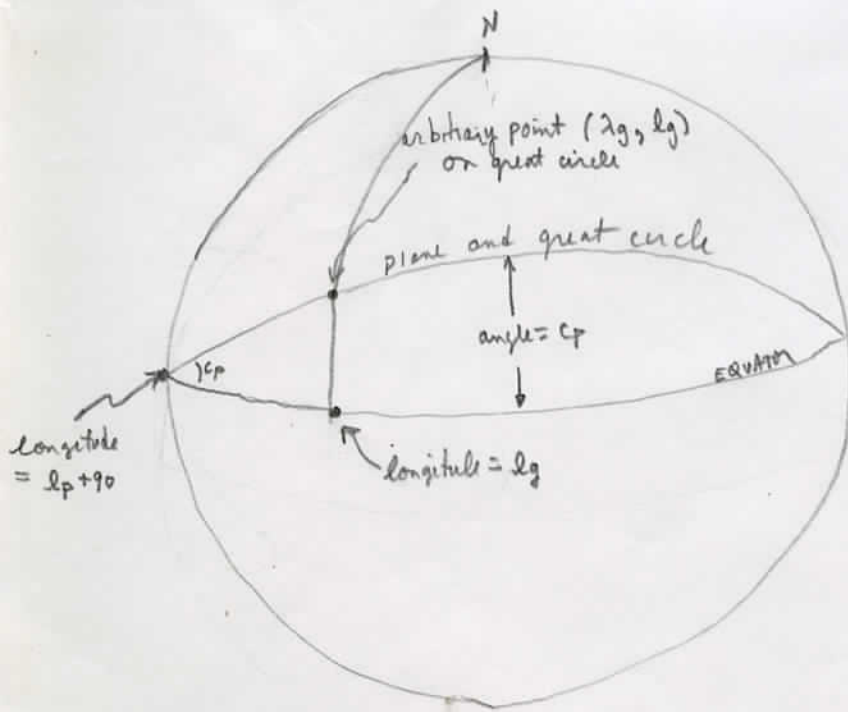 N
arbitrary point (λg, lg)
on great circle
plane and great circle
angle = cp
)cp
EQUATOR
longitude
= lp+90
longitude = lg